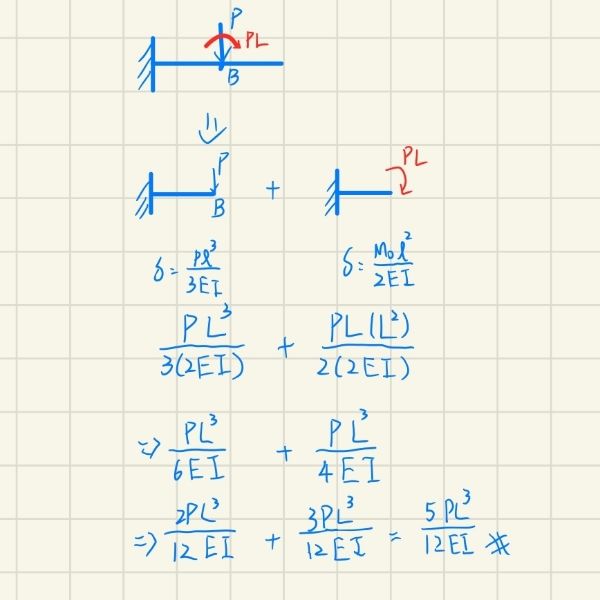 P
PL
B
⇓
P
B
+
PL
δ = Pl³/3EI
δ = M₀l²/2EI
PL³/3(2EI) + PL(L²)/2(2EI)
=> PL³/6EI + PL³/4EI
=> 2PL³/12EI + 3PL³/12EI = 5PL³/12EI ※